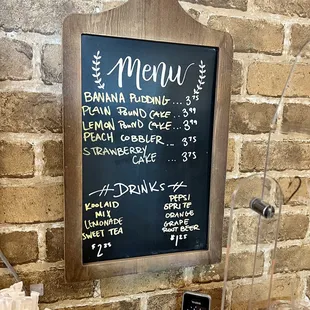 Menu
BANANA PUDDING ... 3.75
PLAIN POUND CAKE ... 3.99
LEMON POUND CAKE ... 3.99
PEACH COBBLER ... 3.75
STRAWBERRY
CAKE ... 3.75
DRINKS
KOOLAID
MIX
LEMONADE
SWEET TEA
$2.50
PEPSI
SPRITE
ORANGE
GRAPE
ROOT BEER
$1.25